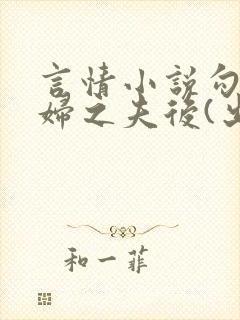 言情小說勾
婦之夫後(
和一菲